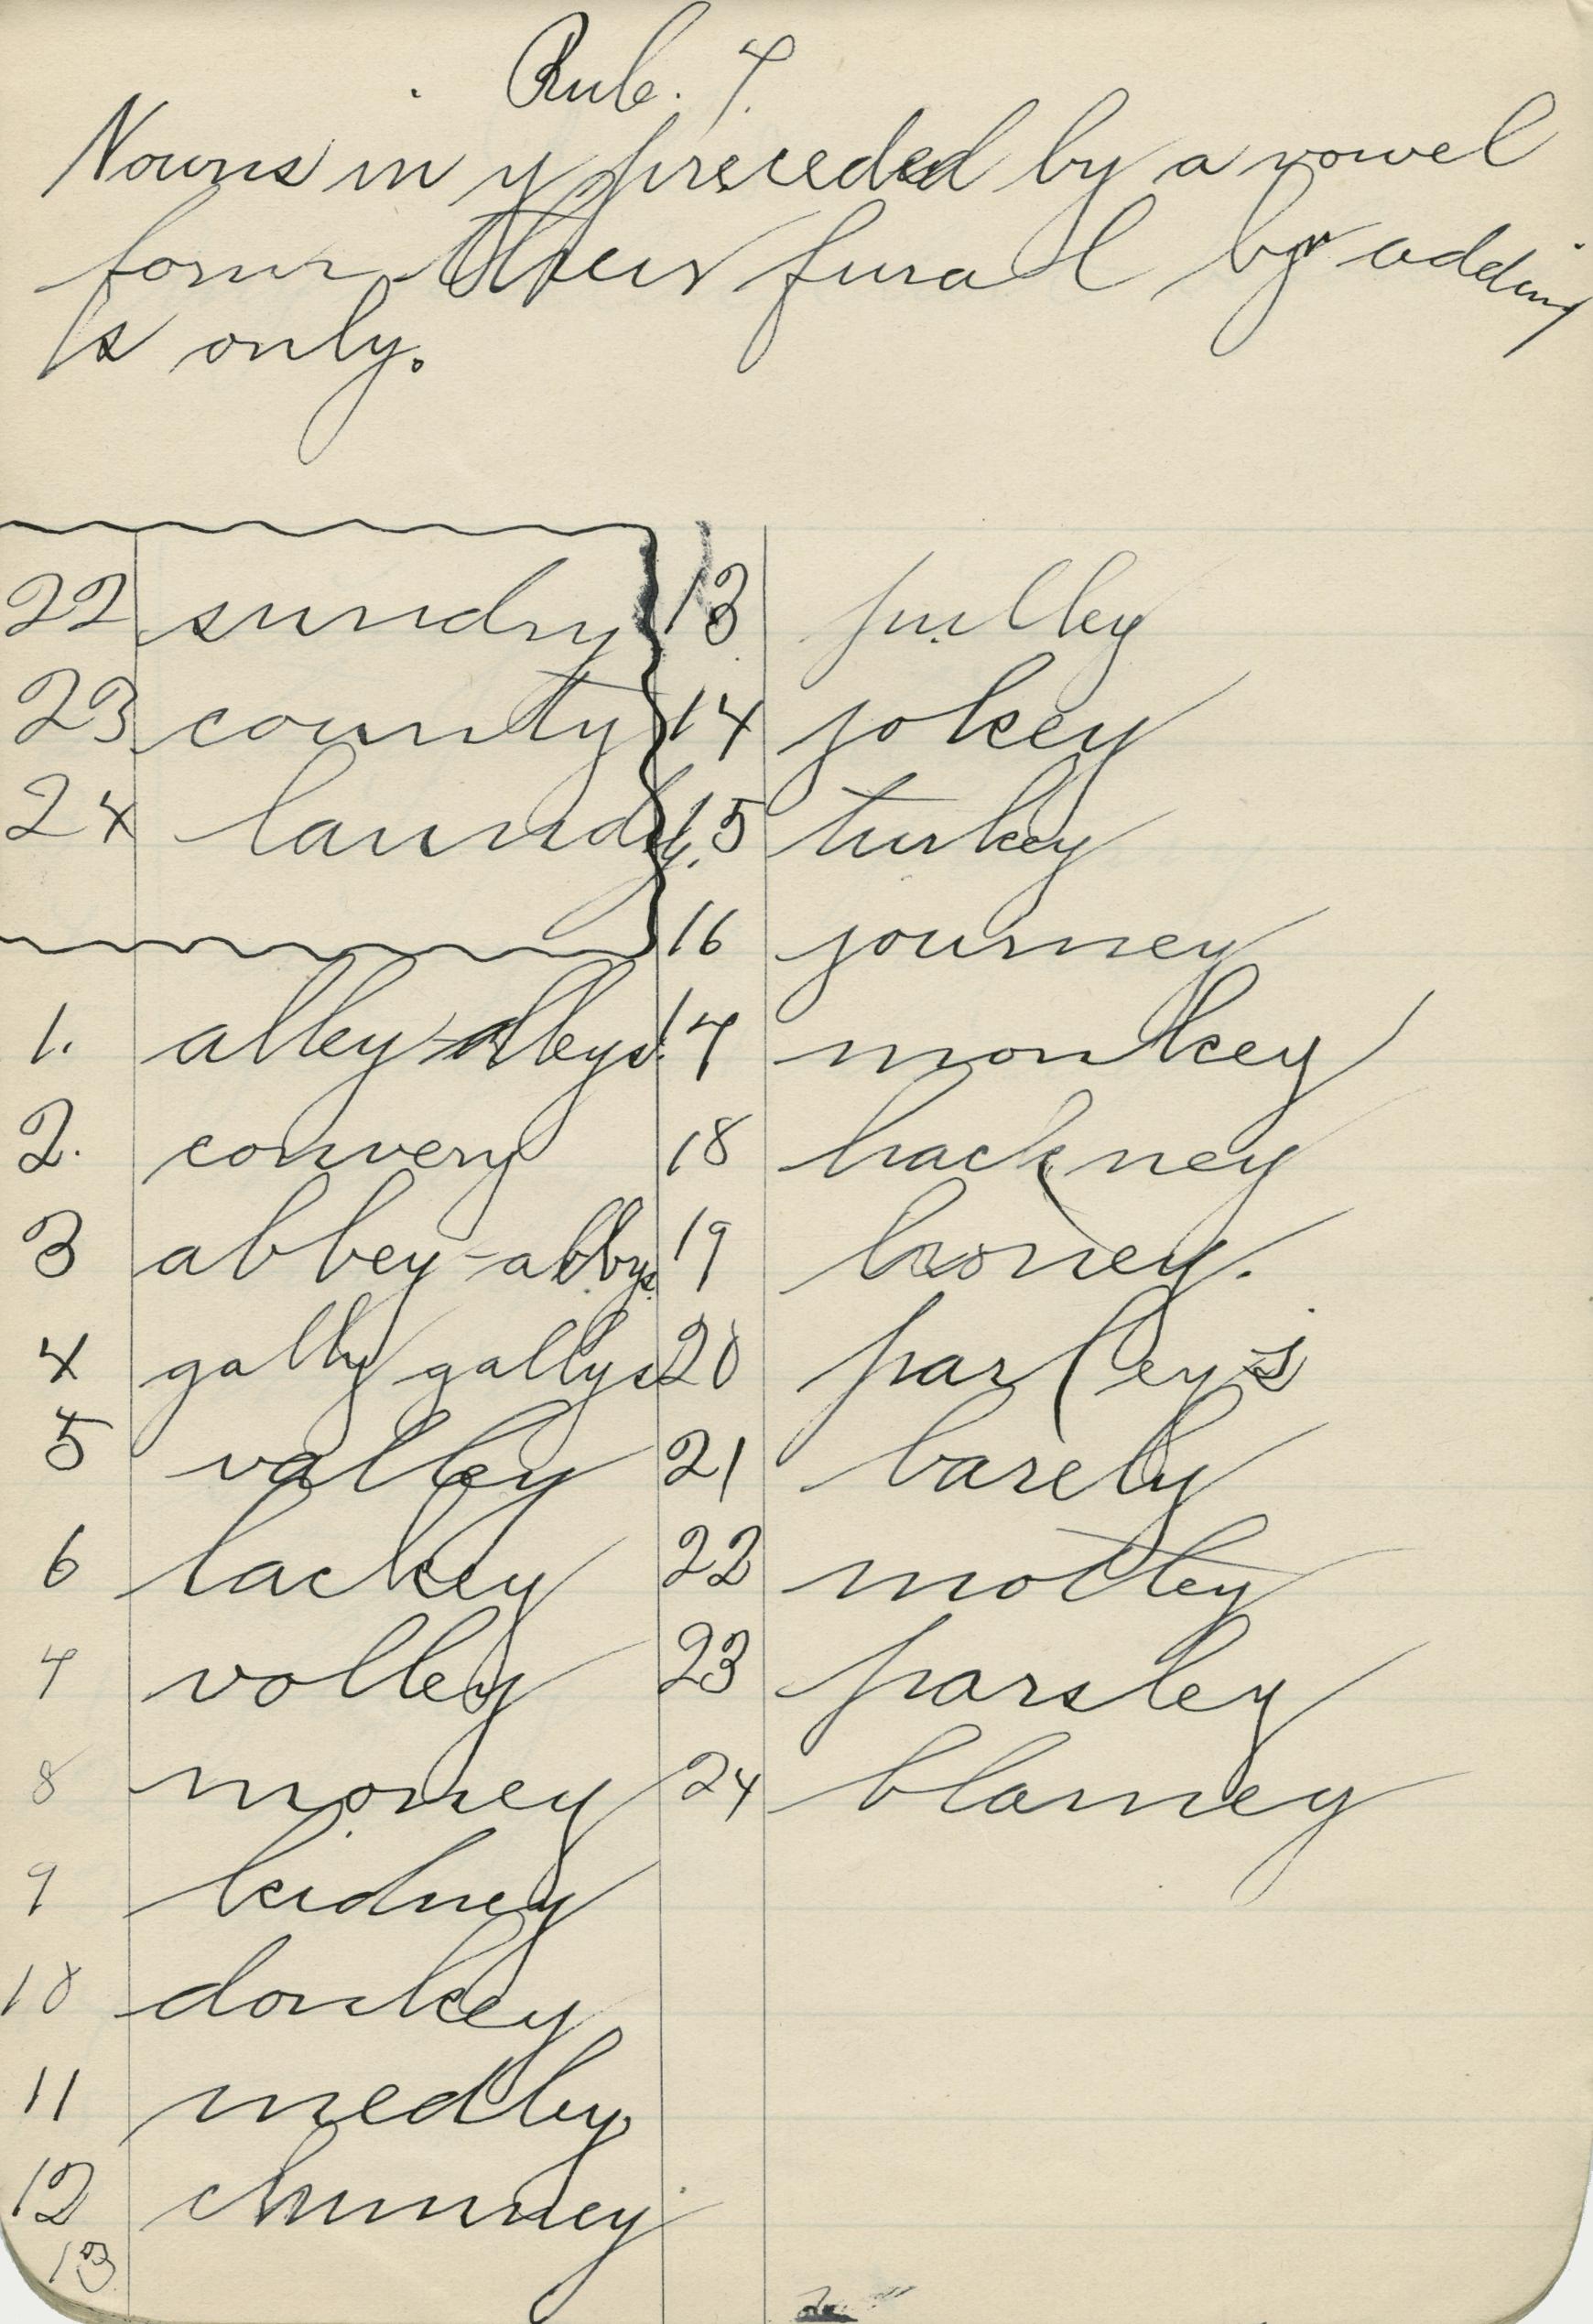 Rule. 7.
Nouns in y preceded by a vowel
form their fural by adding
s only.
22 sundry
23 county
24 laundy.
1. alley-alleys.
2. convery
3 abbey-abbys.
4 gally gallys
5 valley
6 lackey
7 volley
8 money
9 kidney
10 donkey
11 medley
12 chimney
13
13 pulley
14 jokey
15 turkey
16 journey
17 monkey
18 hackney
19 honey.
20 parley's
21 barely
22 motley
23 parsley
24 blarney